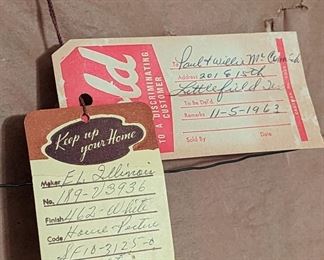 Sold
TO A DISCRIMINATING
CUSTOMER
To Paul & Willie McCormick
Address 201 E 15th
Littlefield Tx.
To Be Del'd.
Remarks 11-5-1963
Sold By Date
Keep up
your Home
Maker F. L. Illinois
No. 189-V3936
Finish 462-White
Code House-Vesture
SF10-3125-0